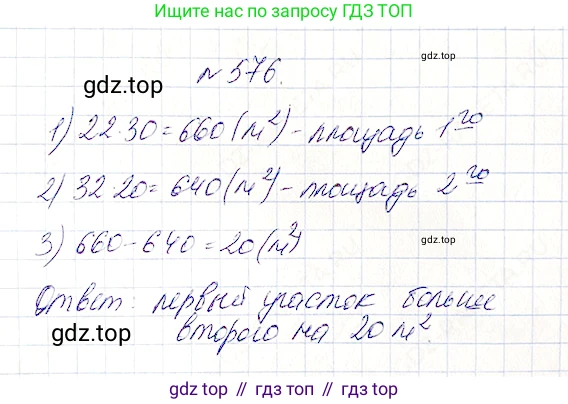 Ищите нас по запросу ГДЗ ТОП
gdz.top
№ 576.
1) 22·30=660(м²) - площадь 1го
2) 32·20=640(м²) - площадь 2го
3) 660-640=20(м²)
Ответ: первый участок больше
gdz.top
второго на 20 м².
gdz.top
gdz.top // гдз топ // гдз.топ